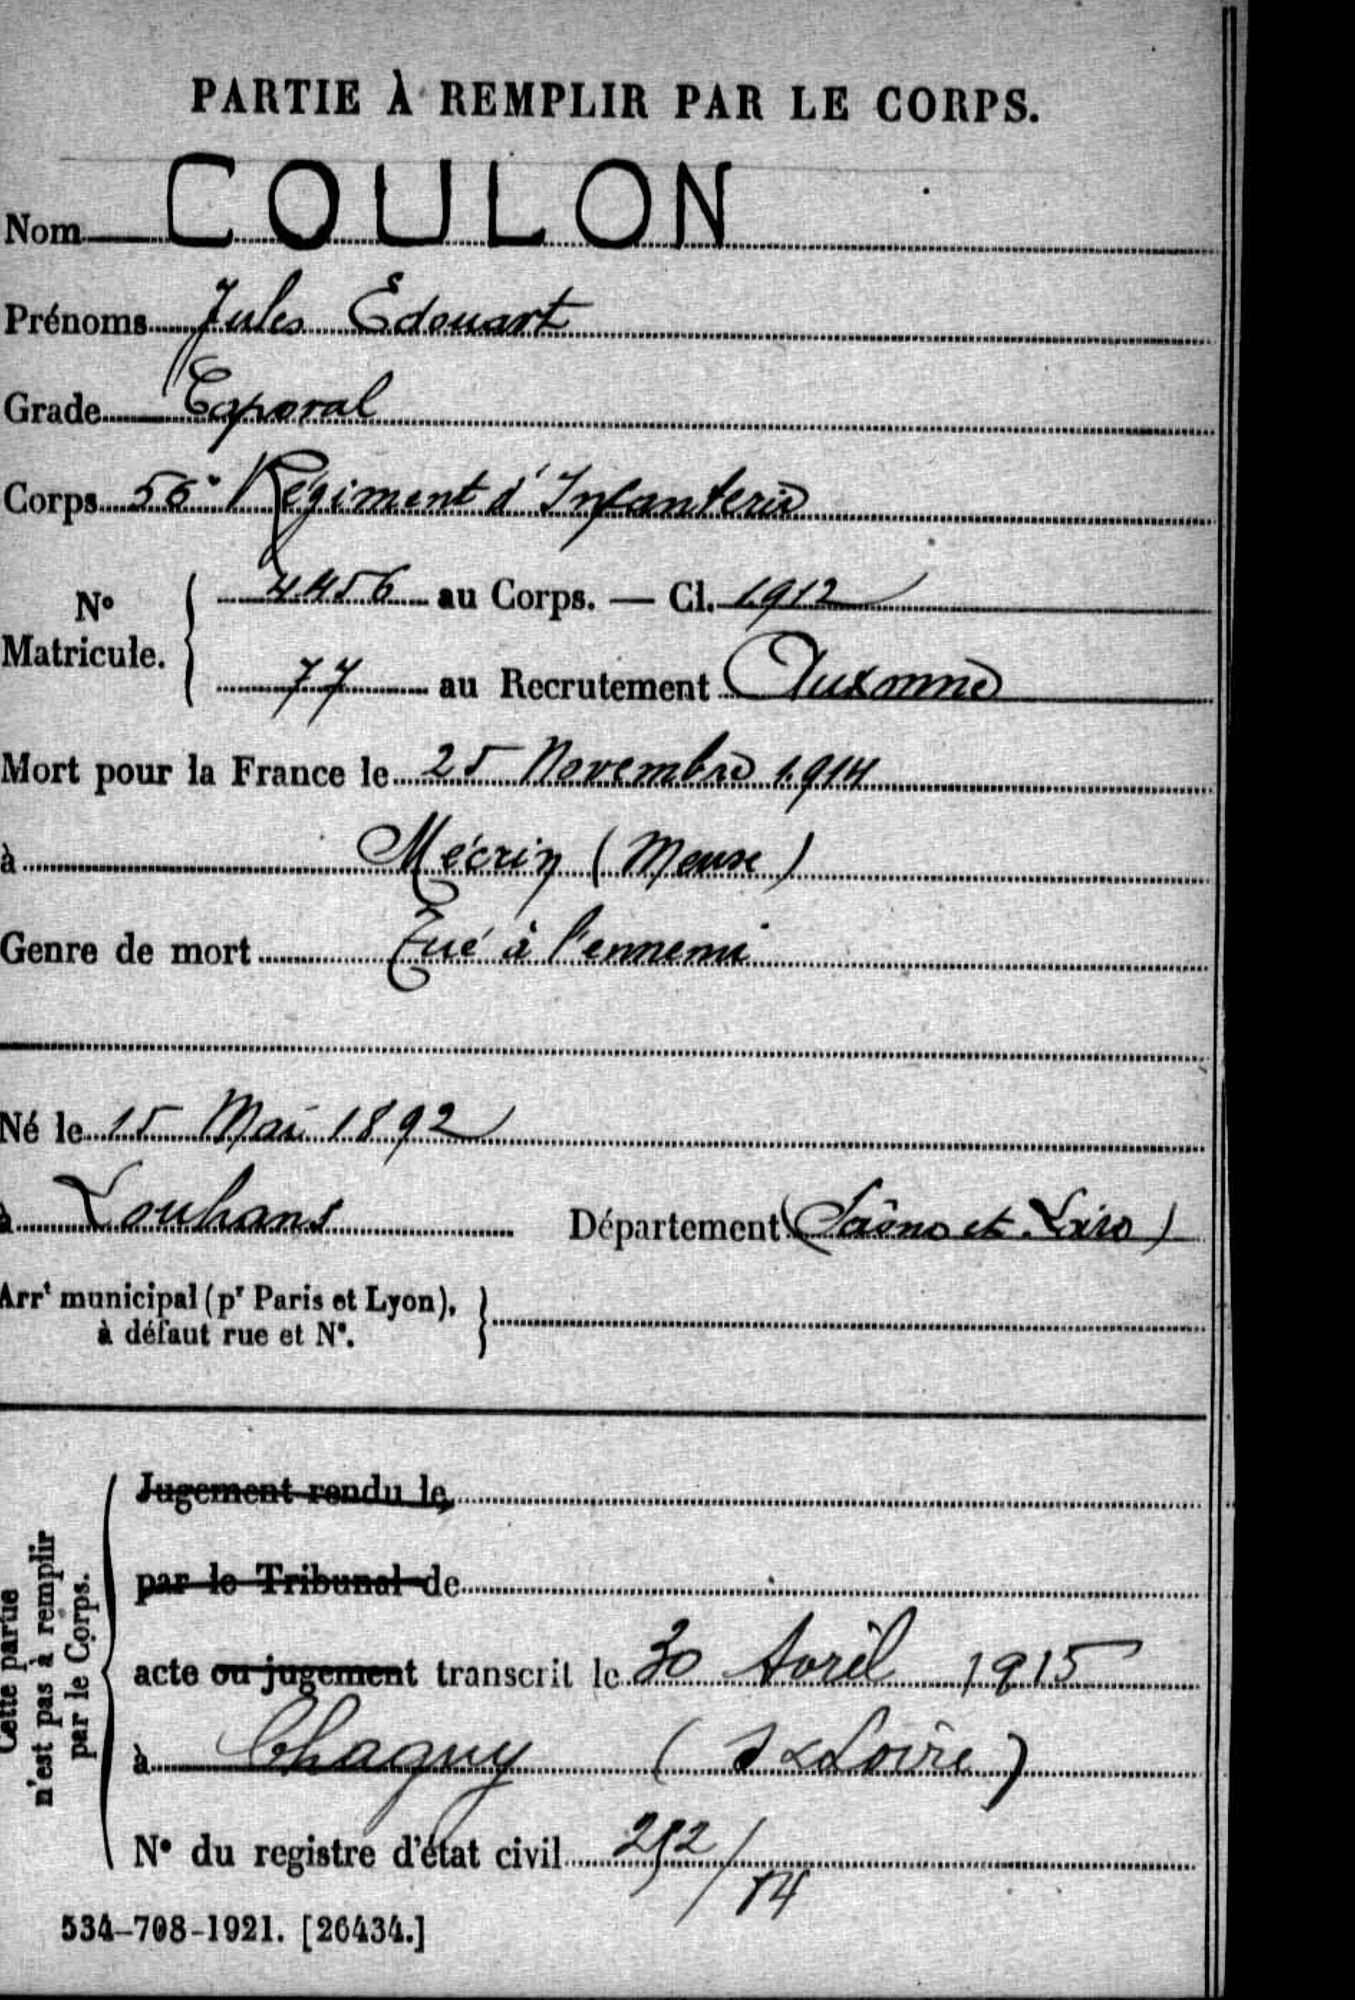 PARTIE À REMPLIR PAR LE CORPS.
Nom COULON
Prénoms Jules Edouart
Grade Caporal
Corps 56e Régiment d'Infanterie
N° Matricule. 4456 au Corps. — Cl. 1912
77 au Recrutement Auxonne
Mort pour la France le 25 Novembre 1914
à Mécrin (Meuse)
Genre de mort Tué à l'ennemi
Né le 15 Mai 1892
à Louhans Département (Saône et Loire)
Arrt municipal (pr Paris et Lyon),
à défaut rue et N°.
Cette partie
n'est pas à remplir
par le Corps.
Jugement rendu le,
par le Tribunal de
acte ou jugement transcrit le 30 Avril 1915
à Chagny (S & Loire)
N° du registre d'état civil 252/14
534-708-1921. [26434.]